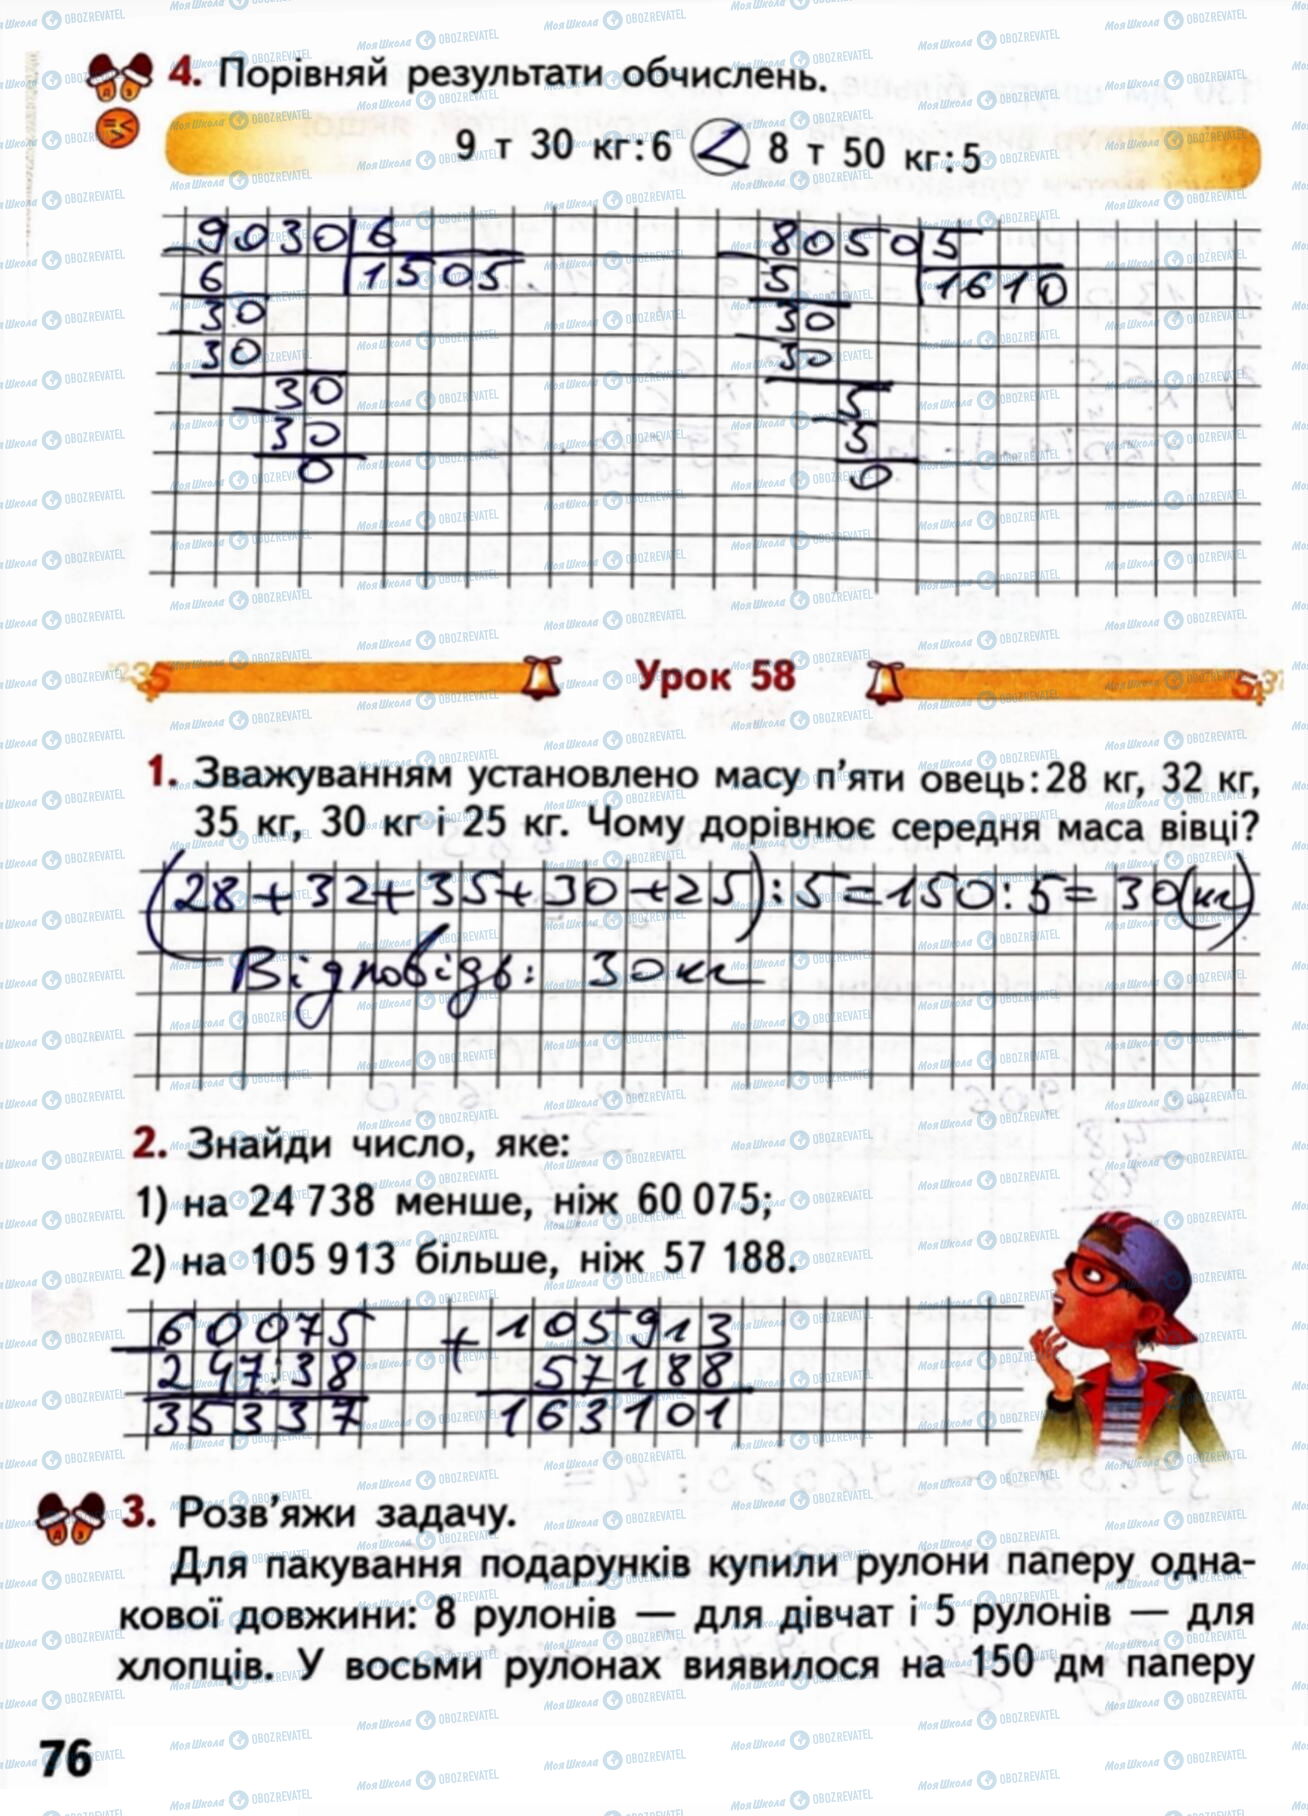 4. Порівняй результати обчислень.
9 т 30 кг:6 < 8 т 50 кг:5
9030 6
6 1505
30
30
30
30
0
8050 5
5 1610
30
30
5
5
0
Урок 58
1. Зважуванням установлено масу п'яти овець: 28 кг, 32 кг,
35 кг, 30 кг і 25 кг. Чому дорівнює середня маса вівці?
(28+32+35+30+25):5=150:5=30(кг)
Відповідь: 30 кг
2. Знайди число, яке:
1) на 24 738 менше, ніж 60 075;
2) на 105 913 більше, ніж 57 188.
60075 + 105913
24738 57188
35337 163101
3. Розв'яжи задачу.
Для пакування подарунків купили рулони паперу одна-
кової довжини: 8 рулонів — для дівчат і 5 рулонів — для
хлопців. У восьми рулонах виявилося на 150 дм паперу
76
МояШкола OBOZREVATEL